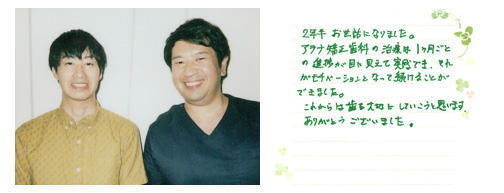 2年半 お世話になりました。
アクア矯正歯科の治療は1ヶ月ごと
の進捗が目に見えて実感でき、それ
がモチベーションとなって続けることが
できました。
これからは歯を大切にしていこうと思います。
ありがとうございました。